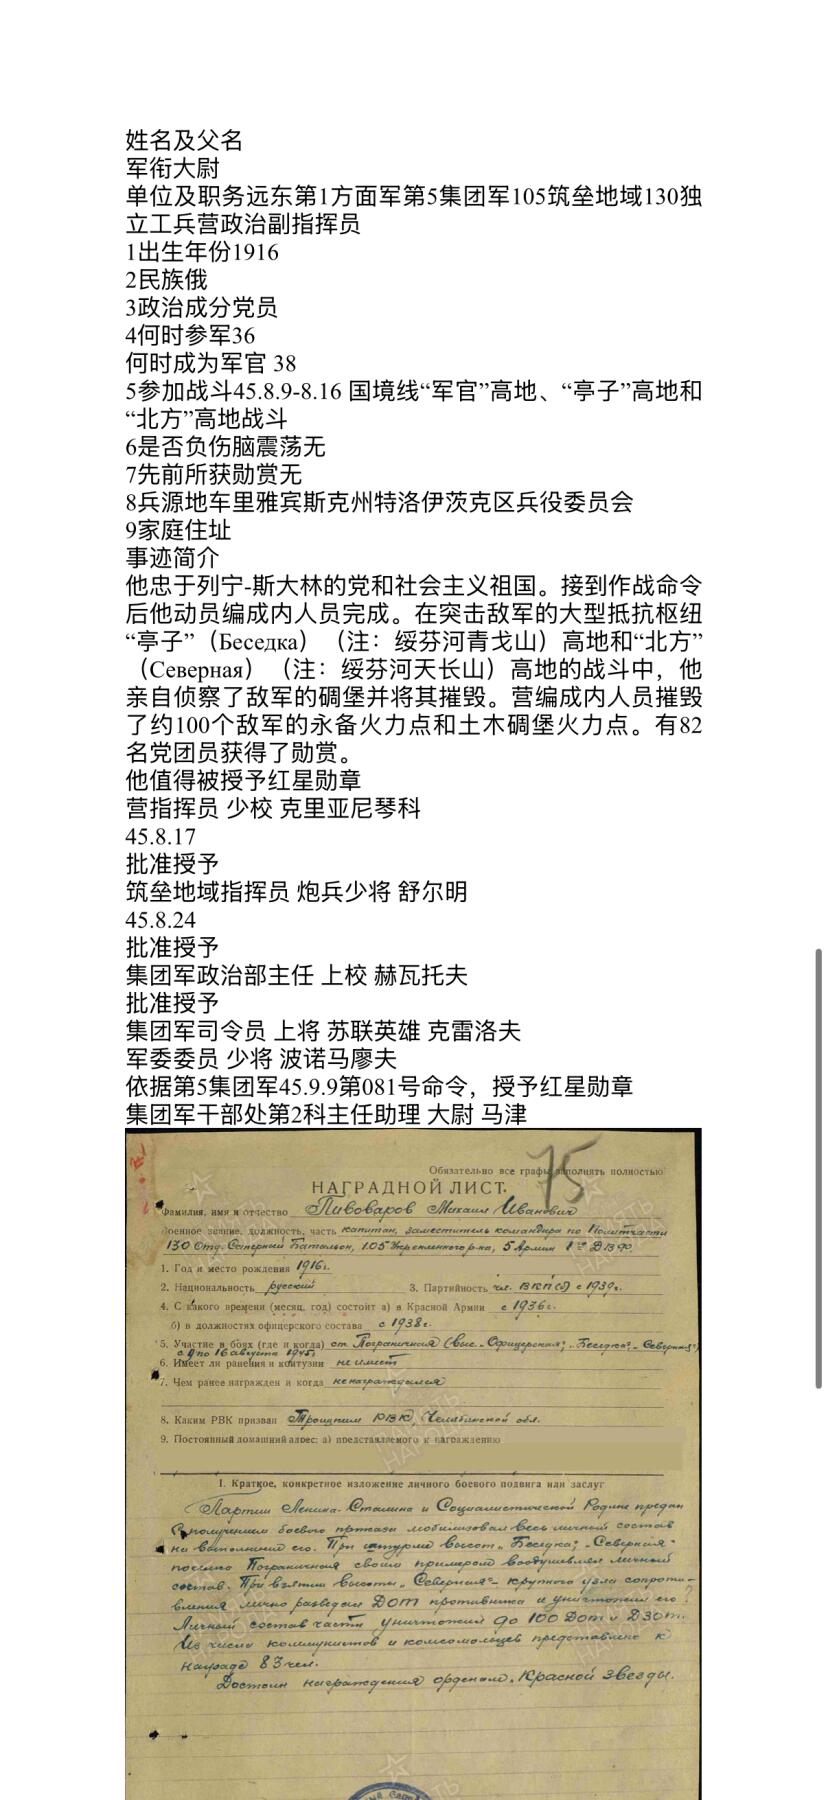 姓名及父名
军衔大尉
单位及职务远东第1方面军第5集团军105筑垒地域130独
立工兵营政治副指挥员
1出生年份1916
2民族俄
3政治成分党员
4何时参军36
何时成为军官 38
5参加战斗45.8.9-8.16 国境线“军官”高地、“亭子”高地和
“北方”高地战斗
6是否负伤脑震荡无
7先前所获勋赏无
8兵源地车里雅宾斯克州特洛伊茨克区兵役委员会
9家庭住址
事迹简介
他忠于列宁-斯大林的党和社会主义祖国。接到作战命令
后他动员编成内人员完成。在突击敌军的大型抵抗枢纽
“亭子”（Беседка）（注：绥芬河青戈山）高地和“北方”
（Северная）（注：绥芬河天长山）高地的战斗中，他
亲自侦察了敌军的碉堡并将其摧毁。营编成内人员摧毁
了约100个敌军的永备火力点和土木碉堡火力点。有82
名党团员获得了勋赏。
他值得被授予红星勋章
营指挥员 少校 克里亚尼琴科
45.8.17
批准授予
筑垒地域指挥员 炮兵少将 舒尔明
45.8.24
批准授予
集团军政治部主任 上校 赫瓦托夫
批准授予
集团军司令员 上将 苏联英雄 克雷洛夫
军委委员 少将 波诺马廖夫
依据第5集团军45.9.9第081号命令，授予红星勋章
集团军干部处第2科主任助理 大尉 马津
75
Обязательно все графы заполнять полностью
НАГРАДНОЙ ЛИСТ.
Фамилия, имя и отчество Пивоваров Михаил Иванович
Военное звание, должность, часть капитан, заместитель командира по Политчасти
130 Отд. Саперный Батальон, 105 Укрепленного р-на, 5 Армии 1го ДВФ
1. Год и место рождения 1916г.
2. Национальность русский 3. Партийность чл. ВКП(б) с 1939г.
4. С какого времени (месяц, год) состоит а) в Красной Армии с 1936г.
б) в должностях офицерского состава с 1938г.
5. Участие в боях (где и когда) ст. Пограничная (выс. „Офицерская", „Беседка", „Северная")
с 9 по 16 августа 1945г.
6. Имеет ли ранения и контузии не имеет
7. Чем ранее награжден и когда не награждался
8. Каким РВК призван Троицким РВК, Челябинской обл.
9. Постоянный домашний адрес: а) представляемого к награждению
I. Краткое, конкретное изложение личного боевого подвига или заслуг
Партии Ленина-Сталина и Социалистической Родине предан
С получением боевого приказа мобилизовал весь личный состав
на выполнение его. При штурме высот „Беседка", „Северная"
поселка Пограничная своим примером воодушевлял личный
состав. При взятии высоты „Северная" – крупного узла сопроти-
вления лично разведал ДОТ противника и уничтожил его
Личный состав части уничтожил до 100 Дот и Дзот.
Из числа коммунистов и комсомольцев представлено к
награде 83 чел.
Достоин награждения орденом „Красной Звезды.
ПАМЯТЬ
НАРОДА